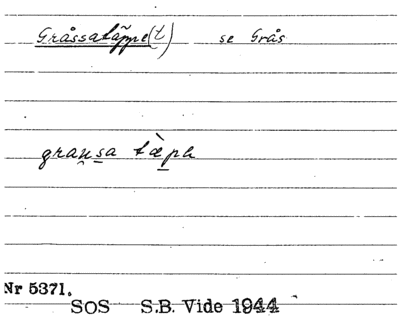 Gråssatäppe(t) se Grås
graṷs̲a tæ̲̀pa
Nr 5371.
SOS S.B. Vide 1944